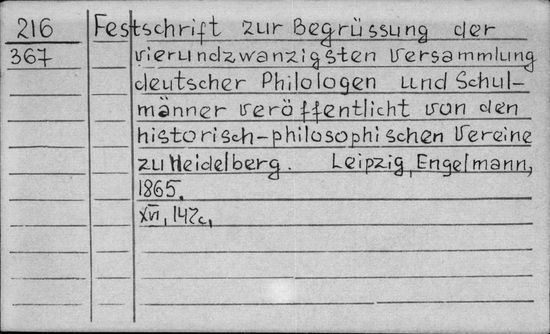 216 Festschrift zur Begrüssung der
367 vierundzwanzigsten Versammlung
deutscher Philologen und Schul-
männer veröffentlicht von den
historisch-philosophischen Vereine
zu Heidelberg. Leipzig, Engelmann,
1865.
XVI, 147c,